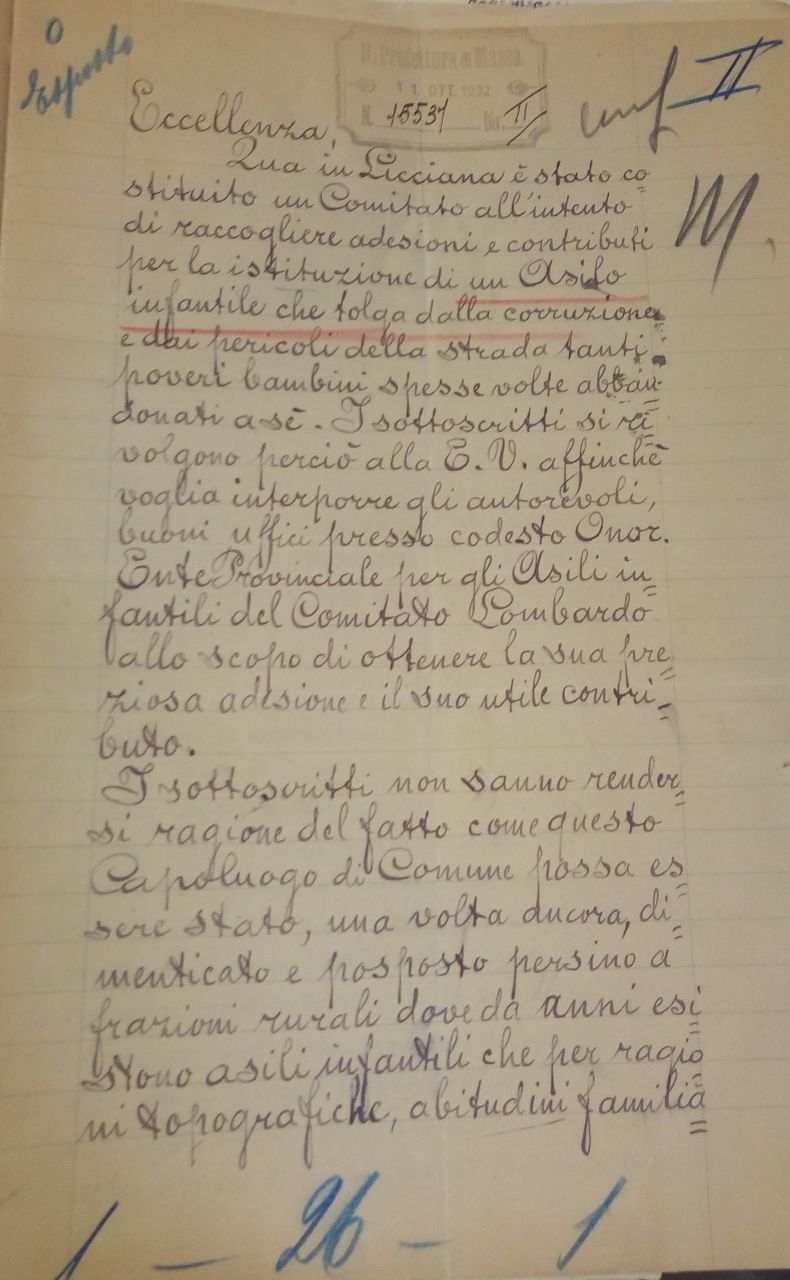 Esposto
R. Prefettura di Massa
11 OTT. 1932
N. 15537 Div. II
II
M.
Eccellenza,
Qua in Licciana è stato co=
stituito un Comitato all'intento
di raccogliere adesioni e contributi
per la istituzione di un Asilo
infantile che tolga dalla corruzione
e dai pericoli della strada tanti
poveri bambini spesse volte abban=
donati a sè. I sottoscritti si ri=
volgono perciò alla E. V. affinchè
voglia interporre gli autorevoli,
buoni uffici presso codesto Onor.
Ente Provinciale per gli Asili in=
fantili del Comitato Lombardo
allo scopo di ottenere la sua pre=
ziosa adesione e il suo utile contri=
buto.
I sottoscritti non sanno render=
si ragione del fatto come questo
Capoluogo di Comune possa es=
sere stato, una volta ancora, di=
menticato e posposto persino a
frazioni rurali dove da anni esi=
stono asili infantili che per ragio=
ni topografiche, abitudini familia=
1 - 26 - 1